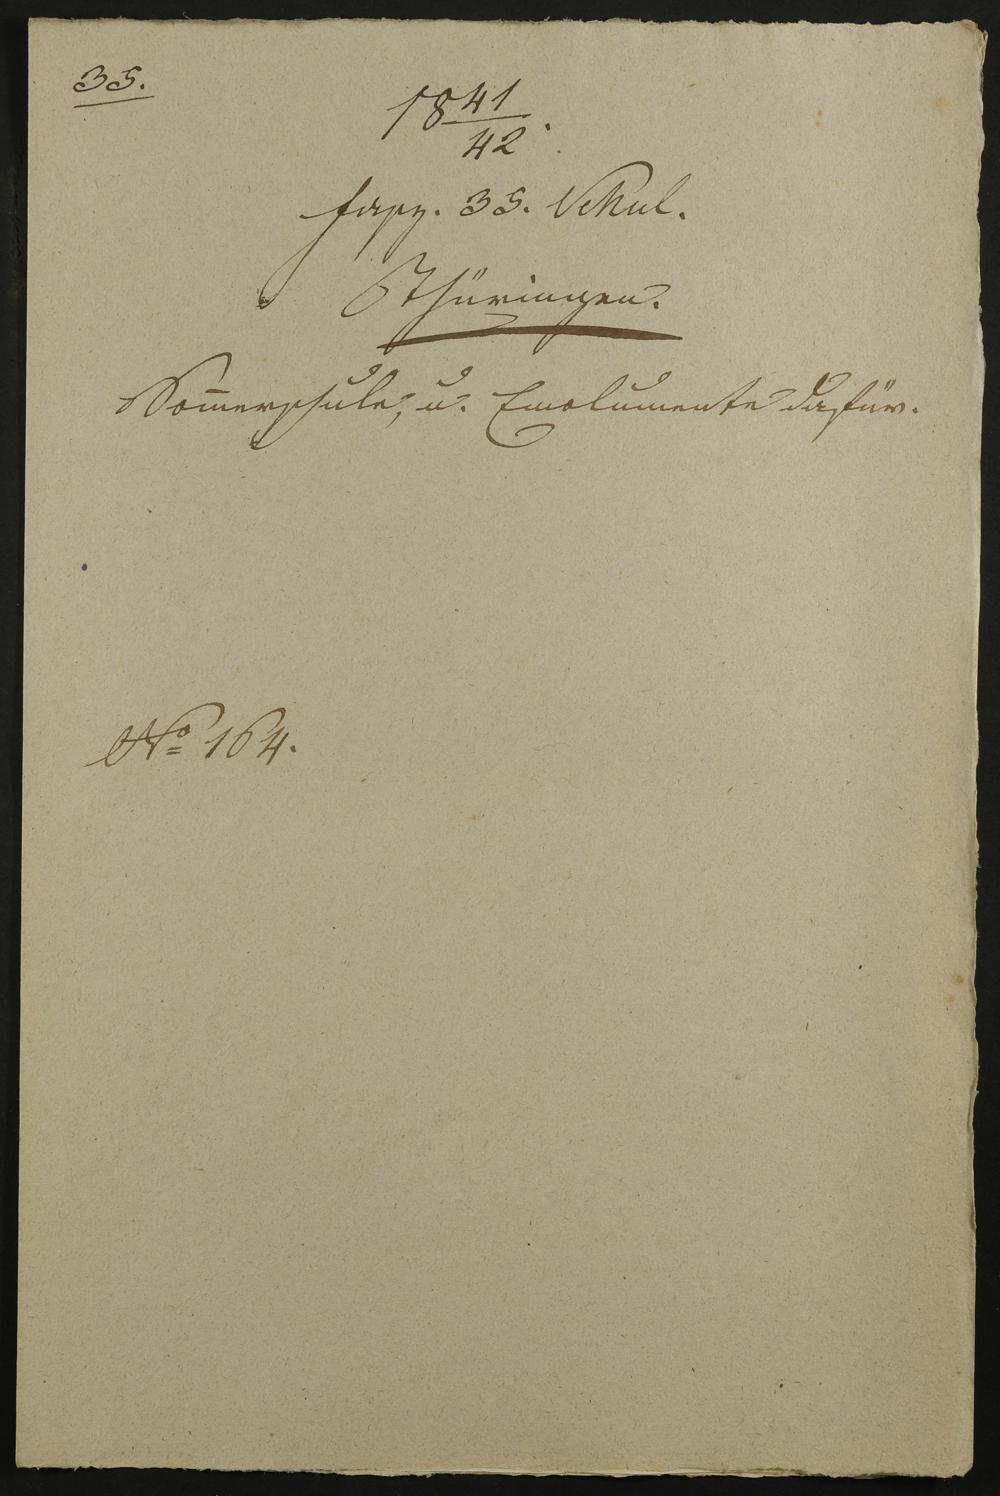 35.
1841/42.
Fasz. 35. Schul.
Thüringen.
Som̅erschule, u. Emolumente dafür.
No 164.